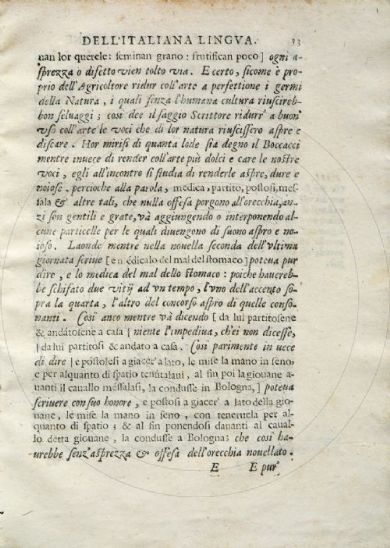 DELL'ITALIANA LINGVA. 33
nan lor querele: seminan grano: frutifican poco] ogni a-
sprezza o difetto vien tolto via. E certo, sicome è pro-
prio dell'Agricoltore ridur coll'arte a perfettione i germi
della Natura, i quali senza l'humana cultura riuscireb-
bon seluaggi; così dee il saggio Scrittore ridur' a buon'
vso coll'arte le voci che di lor natur riuscissero aspre e
discare. Hor mirisi di quanta lode sia degno il Boccacci
mentre inuece di render coll'arte più dolci e care le nostre
voci, egli all'incontro si studia di renderle aspre, dure e
noiose. percioche alla parola, medica, partito, postosi, mes-
sala & altre tali, che nulla offesa porgono all'orecchia, an-
zi son gentili e grate, và aggiungendo o interponendo al-
cune particelle per le quali diuengono di suono aspro e no-
ioso. Laonde mentre nella nouella seconda dell'vltima
giornata scriue [e médicalo del mal del stomaco] poteua pur
dire, e lo medica del mal dello stomaco: poiche hauereb-
be schifato due vitij ad vn tempo, l'vno dell'accento so-
pra la quarta, l'altro del concorso aspro di quelle conso-
nanti. Così anco mentre và dicendo [da lui partitosene
& andatosene a casa] niente l'impediua, ch'ei non dicesse,
[da lui partitosi & andato a casa. Così parimente in uece
di dire [e postolesi a giacer' a lato, le mise la mano in seno:
e per alquanto di spatio tenutalaui, al fin poi la giouane a-
uanti il cauallo messalasi, la condusse in Bologna,] poteua
scriuere con suo honore, e postosi a giacer' a lato della gio-
uane, le mise la mano in seno, con tenercela per al-
quanto di spatio; & al fin ponendosi dauanti al caual-
lo detta giouane, la condusse a Bologna: che così ha-
urebbe senz'asprezza & offesa dell'orecchia nouellato.
E E pur'